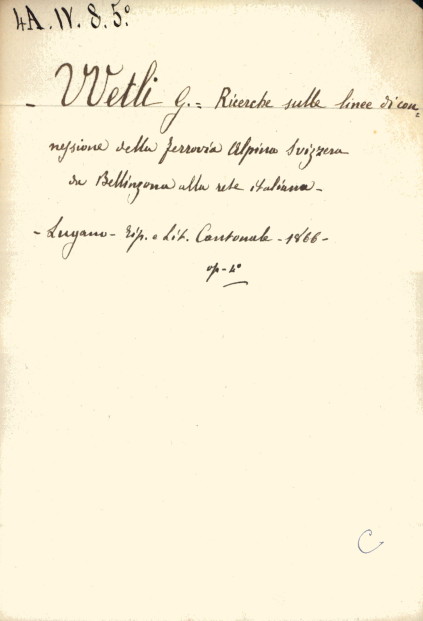 4A. IV. 8. 5º
- Wetli G. = Ricerche sulle linee di con=
nessione della ferrovia Alpina Svizzera
da Bellinzona alla rete italiana -
- Lugano - Tip. e Lit. Cantonale - 1866 -
op - 4º
C